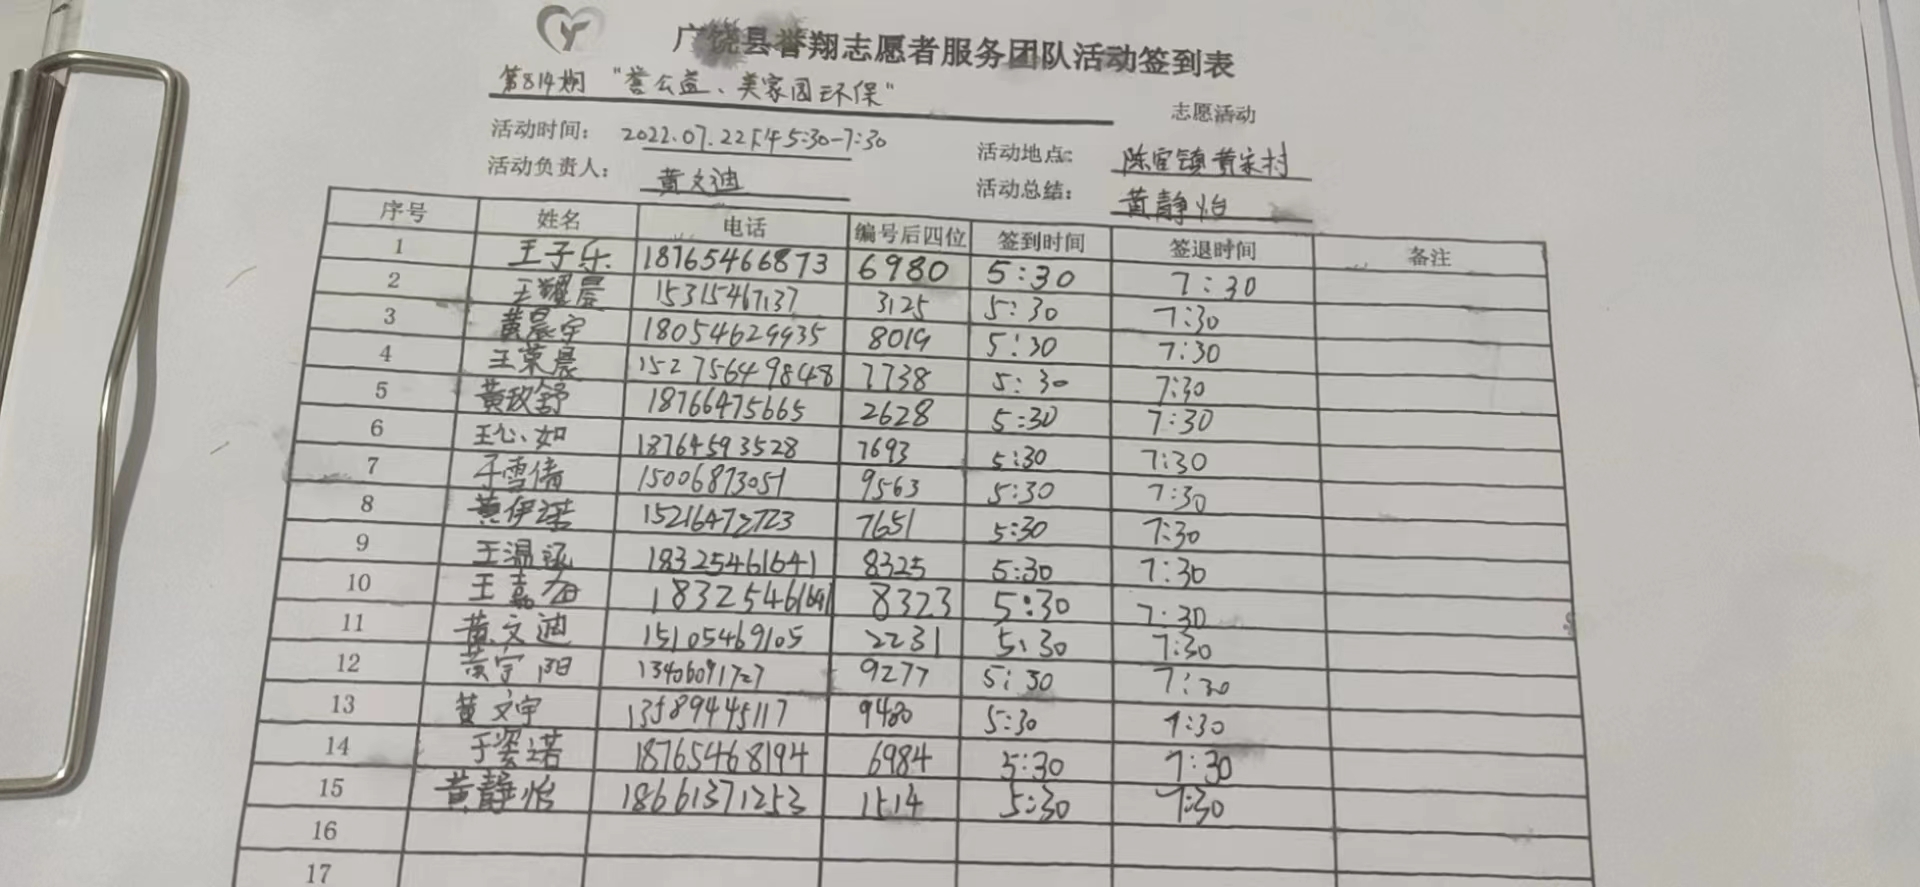 广饶县誉翔志愿者服务团队活动签到表
第814期 "誉公益、美家园环保" 志愿活动
活动时间: 2022.07.22下午5:30-7:30 活动地点: 陈官镇黄宋村
活动负责人: 黄文迪 活动总结: 黄静怡
序号 姓名 电话 编号后四位 签到时间 签退时间 备注
1 王子乐 18765466873 6980 5:30 7:30
2 王耀晨 15315467137 3125 5:30 7:30
3 黄晨宇 18054629935 8019 5:30 7:30
4 王荣晨 15275649848 7738 5:30 7:30
5 黄玫舒 18766475665 2628 5:30 7:30
6 王心如 18764593528 7693 5:30 7:30
7 于雪倩 15006873051 9563 5:30 7:30
8 黄伊诺 15216472723 7651 5:30 7:30
9 王温 18325461641 8325 5:30 7:30
10 王嘉 18325461641 8323 5:30 7:30
11 黄文迪 15105469105 2231 5:30 7:30
12 黄宇阳 13406091727 9277 5:30 7:30
13 黄文宇 13589445117 9480 5:30 7:30
14 于姿诺 18765468194 6984 5:30 7:30
15 黄静怡 18661371253 1514 5:30 7:30
16
17